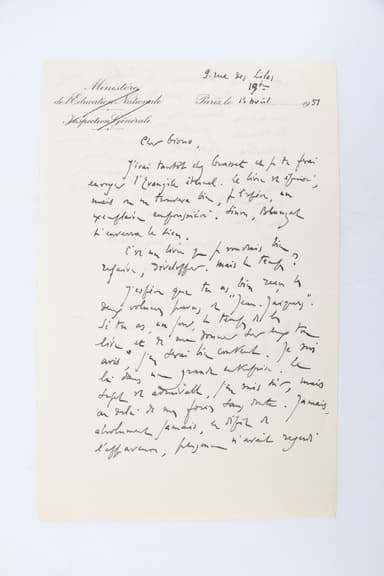 9. rue des Lilas
19e
Ministère
de l'Éducation Nationale
Paris, le 12 avril 1951
Inspection Générale
Cher Giono,
J'irai tantôt chez Grasset et je te ferai
envoyer l'Evangile éternel. Le livre est épuisé,
mais on trouvera bien, j'espère, un
exemplaire Sinon,
t'enverra le sien.
C'est un livre que je voudrais bien
refaire, développer. Mais le temps ?
J'espère que tu as bien reçu les
deux volumes parus de "Jean-Jacques".
Si tu as, un jour, le temps de les
lire et de me donner sur eux ton
avis, j'en serai bien content. Je suis
là dans une grande entreprise. Le
sujet est admirable, j'en suis sûr, mais
au delà de mes forces sans doute. Jamais,
absolument jamais, en dépit de
l'apparence, personne n'avait regardé